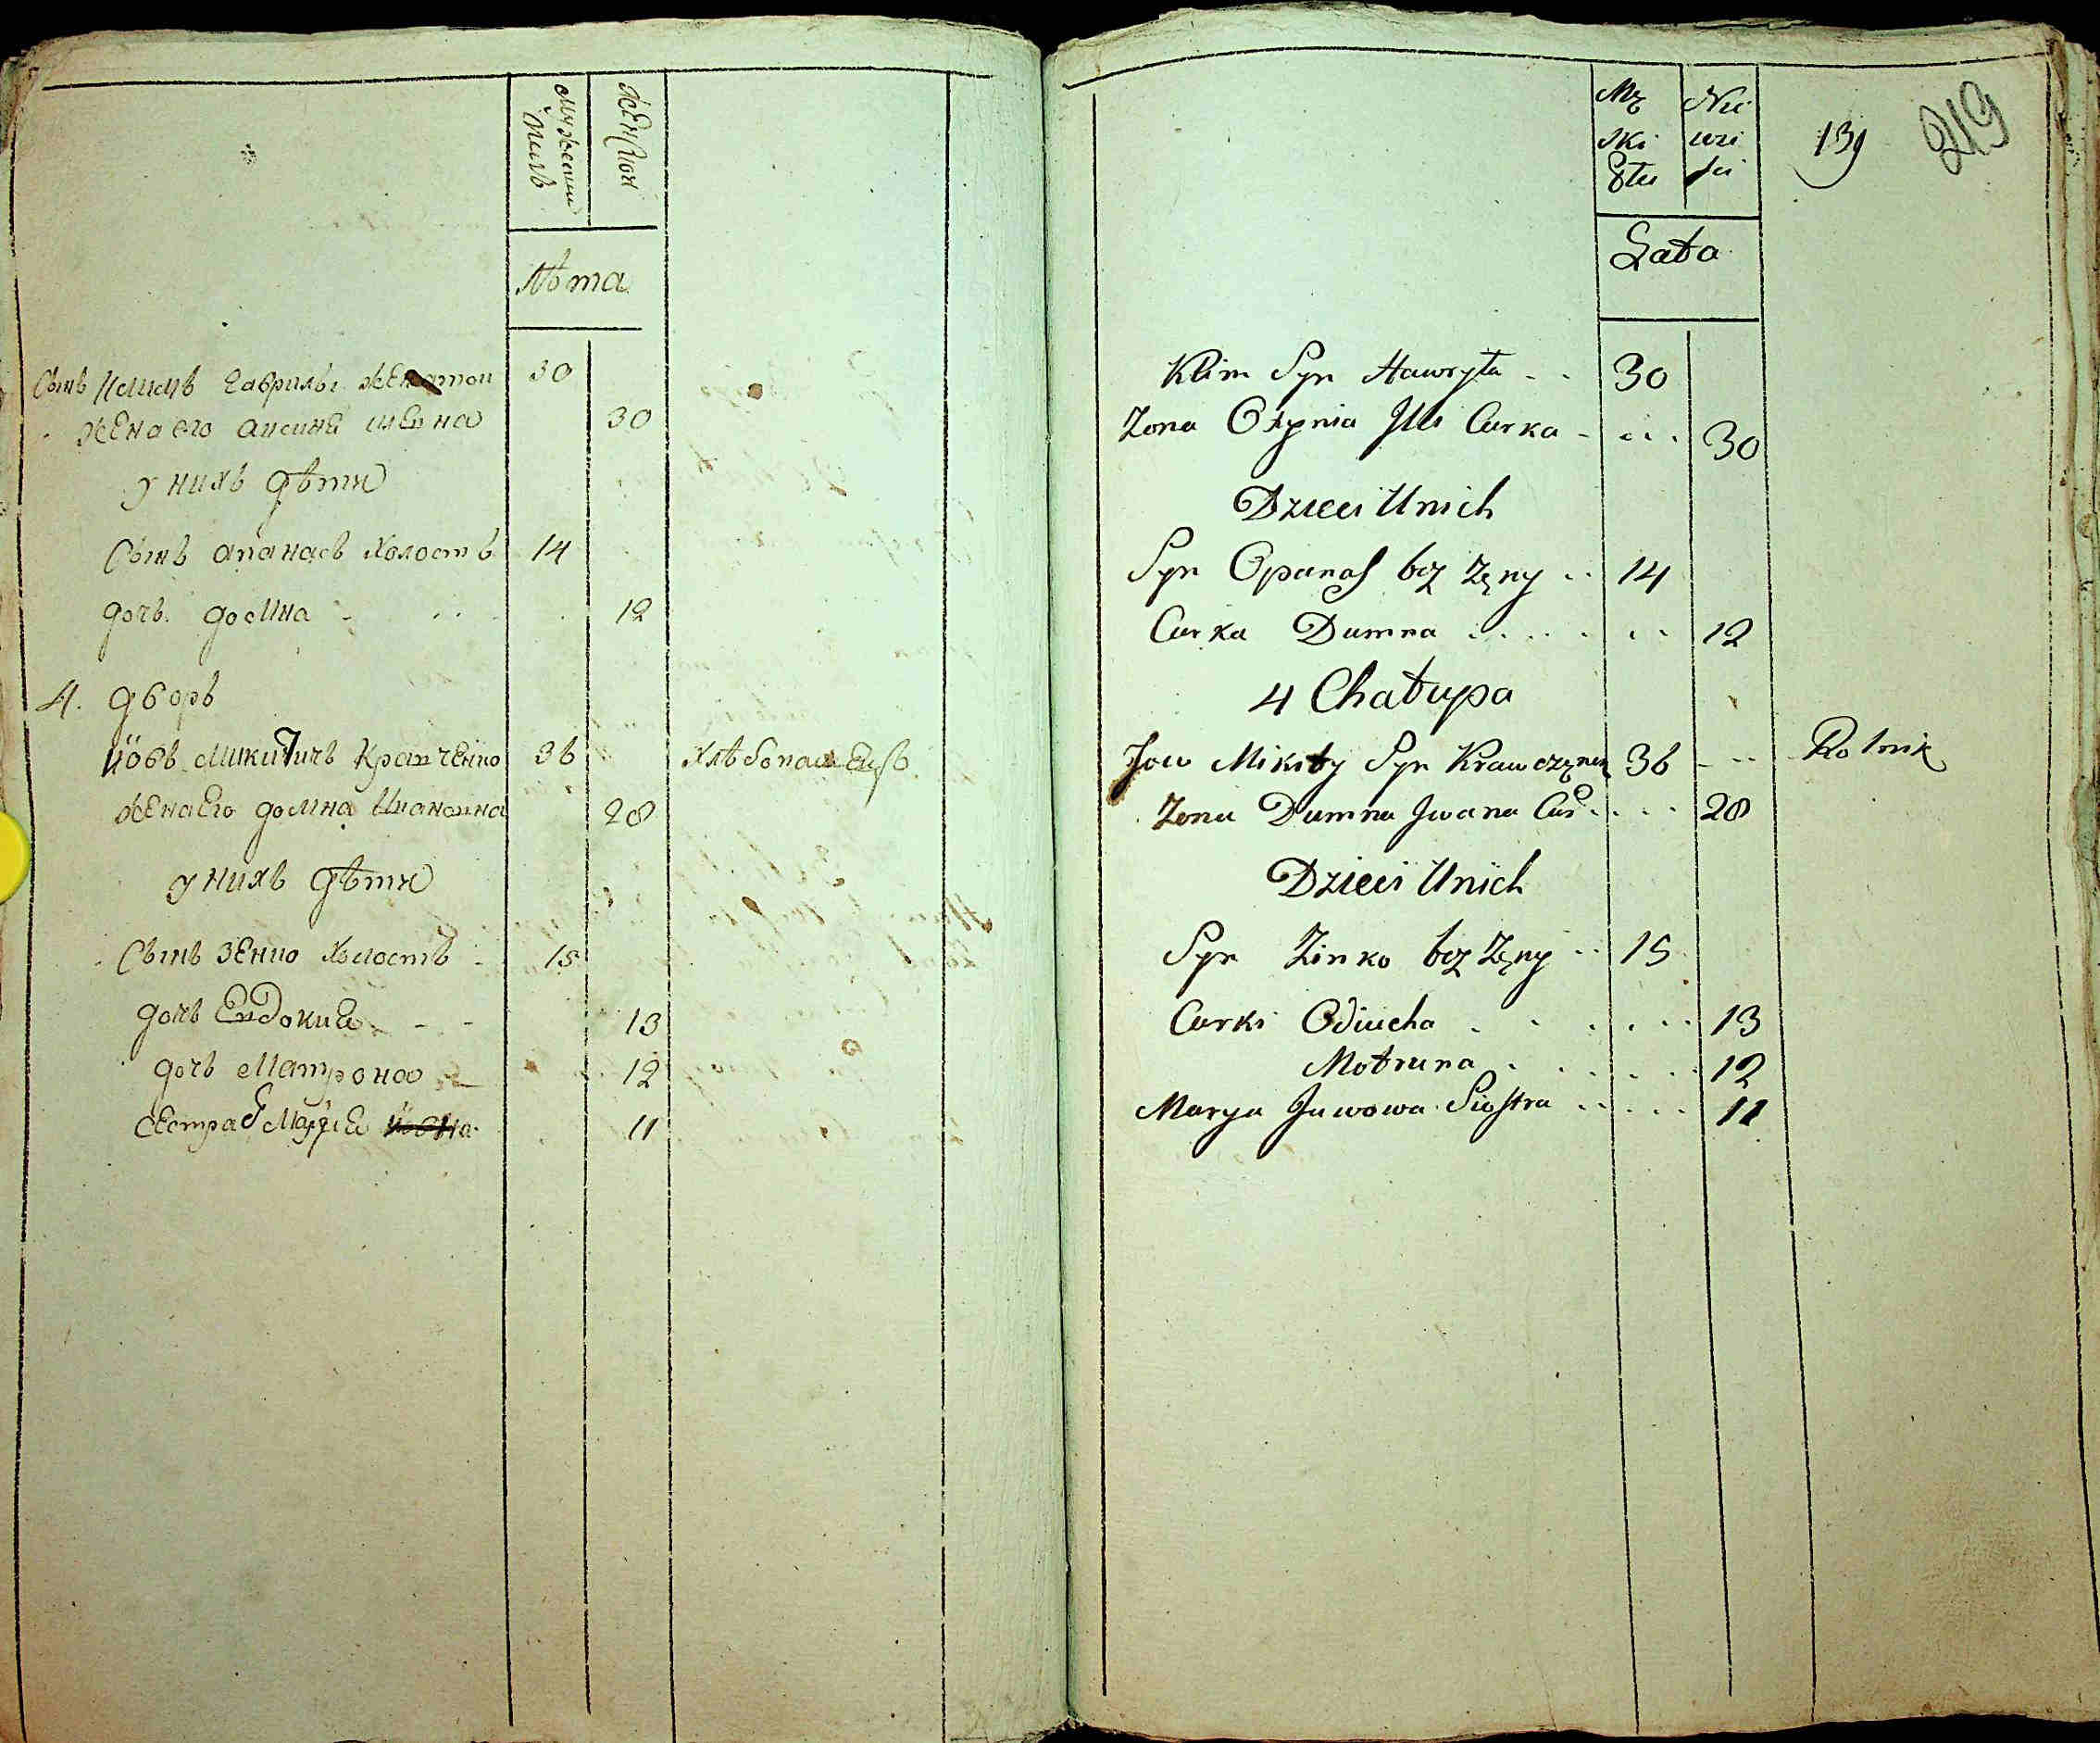 Мужеский
Полъ
женской
Лѣта
Сынъ Климъ Гаврилы женатои 30
жена его аксиниа 30
у нихъ дѣти
Сынъ апанасъ холостъ 14
дочь домна 12
4. дворъ
Иовъ Микитичъ Кравченко 36 Хлѣбопашецъ
жена его домна Ивановна 28
у нихъ дѣти
Сынъ зенко холостъ 15
дочь Евдокиа 13
дочь Матрона 12
Сестра Мариа 11
Mę Nie
ski wie
Płci
139
219
Lata
Klim Syn Hawryła 30
Żona Oxynia Curka 30
Dzieci Unich
Syn Opanas bez Żęny 14
Curka Dumna 12
4 Chałupa
Jow Mikity Syn Krawczęnk 36 Rolnik
Żona Dumna Jwana Cur 28
Dzieci Unich
Syn Zinko bez Żęny 15
Curki Odiucha 13
Motruna 12
Marya Jowowa Siostra 11